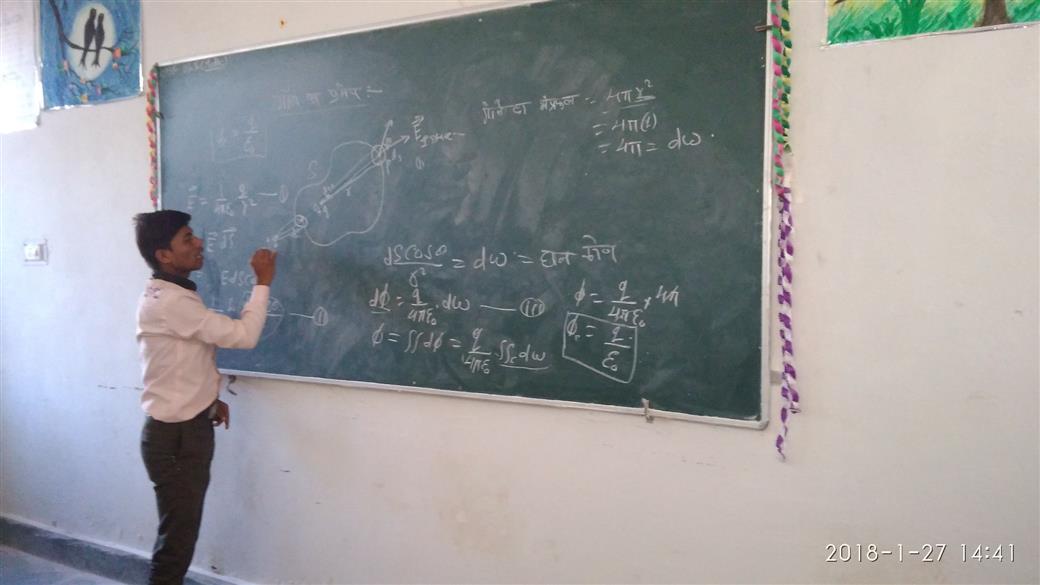 गॉस का प्रमेय :-
ϕ = q/ε₀
E⃗ = 1/4πε₀ q/r² — ①
E⃗ dS⃗
S
E⃗
गोले का क्षेत्रफल = 4πr²
= 4π(1)
= 4π = dω
dS cosθ/r² = dω = घन कोण
dϕ = q/4πε₀ . dω — (iii)
ϕ = ∫∫dϕ = q/4πε₀ ∫∫ₛ dω
ϕ = q/4πε₀ × 4π
ϕ = q/ε₀
2018-1-27 14:41